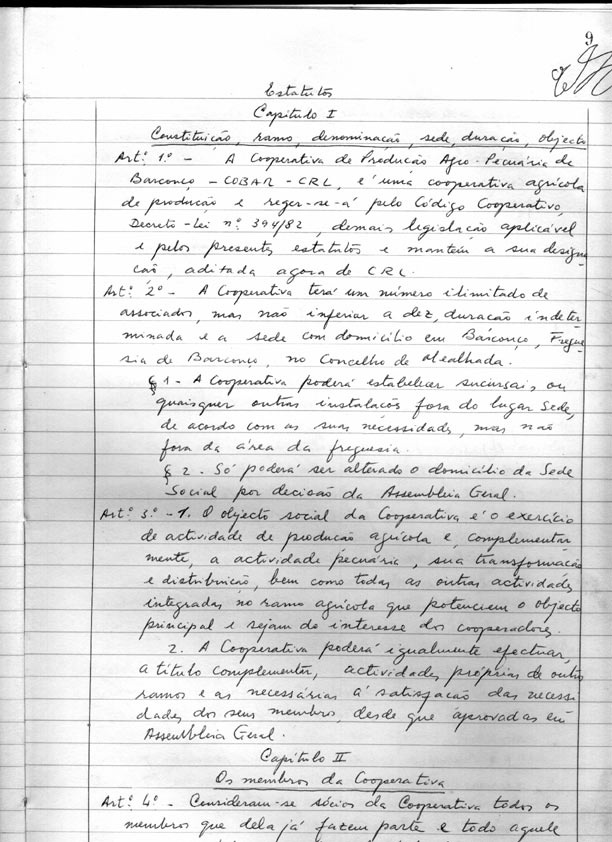 9
Estatutos
Capitulo I
Constituição, ramo, denominação, sede, duração, objecto
Artº. 1º - A Cooperativa de Produção Agro-Pecuária de
Barconço - COBAR - CRL, é uma cooperativa agrícola
de produção e reger-se-á pelo Código Cooperativo,
Decreto-Lei nº 394/82, demais legislação aplicável
e pelos presentes estatutos e mantém a sua designa
ção, aditada agora de CRL.
Artº. 2º - A Cooperativa terá um número ilimitado de
associados, mas não inferior a dez, duração indeter
minada e a sede com domicílio em Barconço, Fregue
sia de Barconço, no Concelho de Mealhada.
§ 1 - A Cooperativa poderá estabelecer sucursais ou
quaisquer outras instalacõs fora do lugar Sede,
de acordo com as suas necessidades, mas não
fora da área da freguesia.
§ 2 - Só poderá ser alterado o domicílio da Sede
Social por decisão da Assembleia Geral.
Artº. 3º - 1. O objecto social da Cooperativa é o exercício
de actividade de produção agrícola e, complementar
mente, a actividade pecuária, sua transformação
e distribuição, bem como todas as outras actividades
integradas no ramo agrícola que potenciem o objecto
principal e sejam de interesse dos cooperadores.
2. A Cooperativa poderá igualmente efectuar,
a título complementar, actividades próprias de outros
ramos e as necessárias à satisfação das necessi
dades dos seus membros, desde que aprovadas em
Assembleia Geral.
Capítulo II
Os membros da Cooperativa
Artº. 4º - Consideram-se sócios da Cooperativa todos os
membros que dela já fazem parte e todo aquele